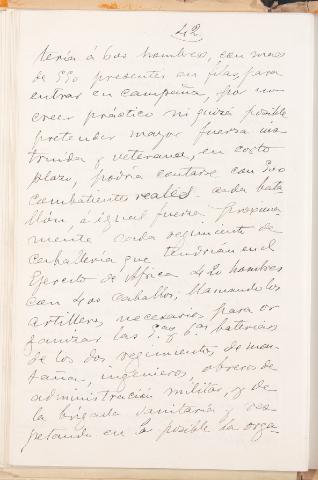 42
tería á 605 hombres, con mas
de 550 presentes en filas, para
entrar en campaña, por no
creer práctico ni quizá posible
pretender mayor fuerza ins-
truida y veterana, en corto
plazo, podria contarse con 500
combatientes reales cada bata-
llón á igual fuerza. Proxima-
mente cada regimiento de
caballería, que tendrian en el
Ejercito de Africa 420 hombres
con 400 caballos; llamando los
artilleros necesarios para or
ganizar las 5as y 6as baterias
de los dos regimientos de mon-
taña, ingenieros, obreros de
administración militar, y de
la brigada sanitaria y res-
petando en lo posible la orga-